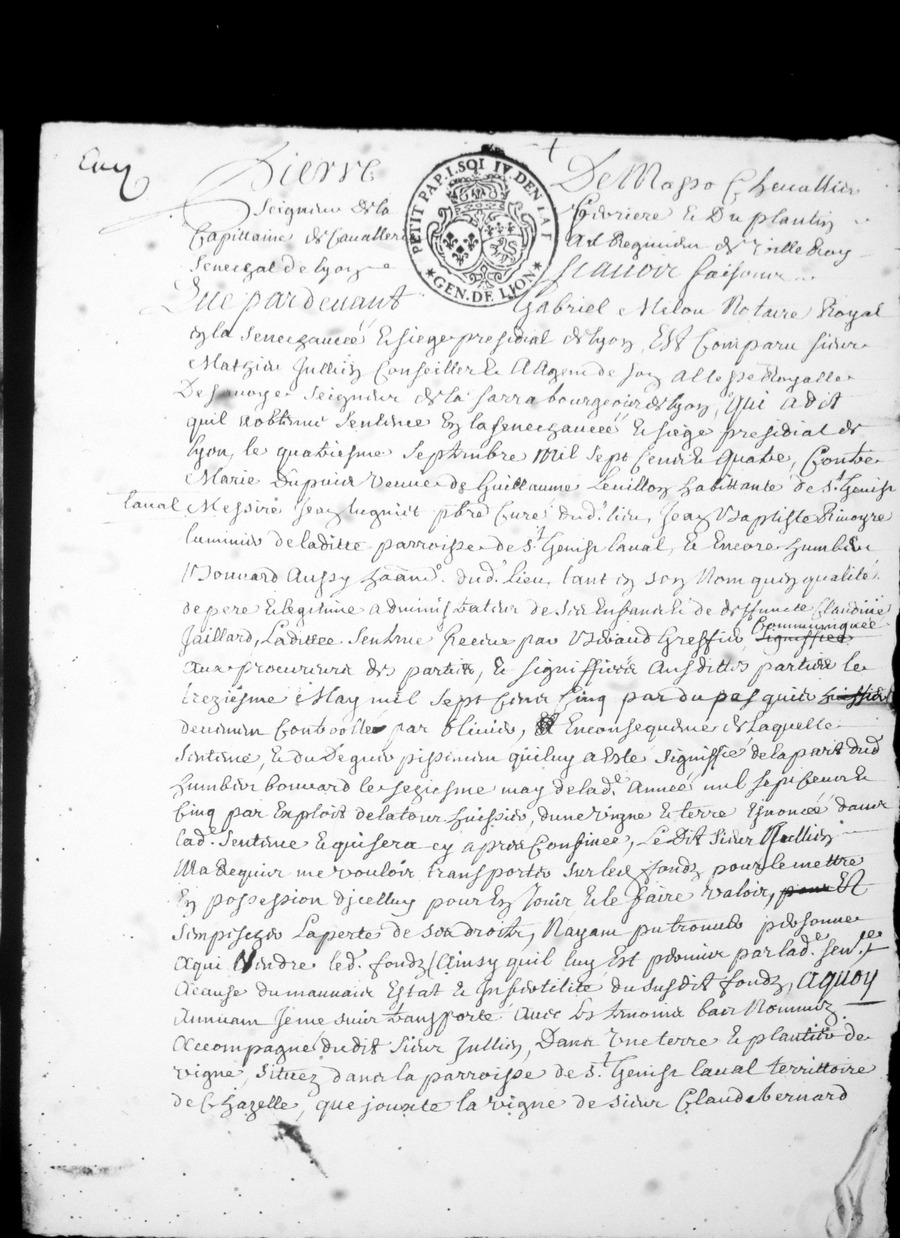 Pierre De Masso Chevallier
Seigneur de la Ferriere et Du plantin
Cappitaine de Cavallerie Au Regiment de Villeroy
Senechal de Lyon Scavoir faisons
PETIT PAP. I. SOL IV. DEN. LA F.
GEN. DE LION
Que pardevant Gabriel Milou Notaire Royal
en la Senechaucée et siege presidial de Lyon, Est Comparu sieur
Mathieu Jullien Conseiller et Agent de son Altesse Royalle
De Savoye Seigneur de la Sarra bourgeois de Lyon, Qui a dit
quil a obtenu Sentence En la Senechaucée et siege presidial de
Lyon, le quatriesme Septembre Mil Sept Cent et Quatre, Contre
Marie Dupuis veuve de Guillaume Levillon habittante de St. Genis
Laval Messire Jean pbre Curé dud. lieu, Jean Baptiste
luminier de laditte parroisse de St. Genis Laval, et Encore humbert
Bouvard Aussy dud. Lieu, tant en son Nom quen qualité
de pere et legitime administrateur de ses Enfans et de deffuncte Claudine
Jaillard, Laditte Sentence Receue par Greffier, Communiquée
Aux procureurs des parties, et signiffiée Ausdittes parties le
treziesme May mil Sept Cent Cinq par du pasquier
Controolle par Olivier, Et En consequence de Laquelle
Sentence, et du Deguerpissement quil luy a Esté Signiffié de la part dud.
humbert bouvard le seziesme may de lad. Année mil sept Cent et
Cinq par Exploit de latour huissier, dune vigne et terre Enoncée dans
lad. Sentence et qui sera cy apres Confinée, Le Dit Sieur Jullien
Ma Requis me vouloir transporter sur led. fonds pour le mettre
En possession dicelluy pour En Jouir et le faire valoir, Et
Empescher La perte de ses droits, Nayant pu trouver personne
a qui Vendre led. fonds Ainsy quil luy Est permis par lad. Sence.
a cause du mauvais Estat et Infertilité du susdit fonds, aquoy
Annuant Je me suis transporté Avec Les temoins bas Nommez
Accompagné dudit Sieur Jullien, Dans Une terre et plantier de
vigne, Situez dans la parroisse de St. Genis Laval territtoire
de Chazelle, que jouxte la vigne de sieur Claude bernard